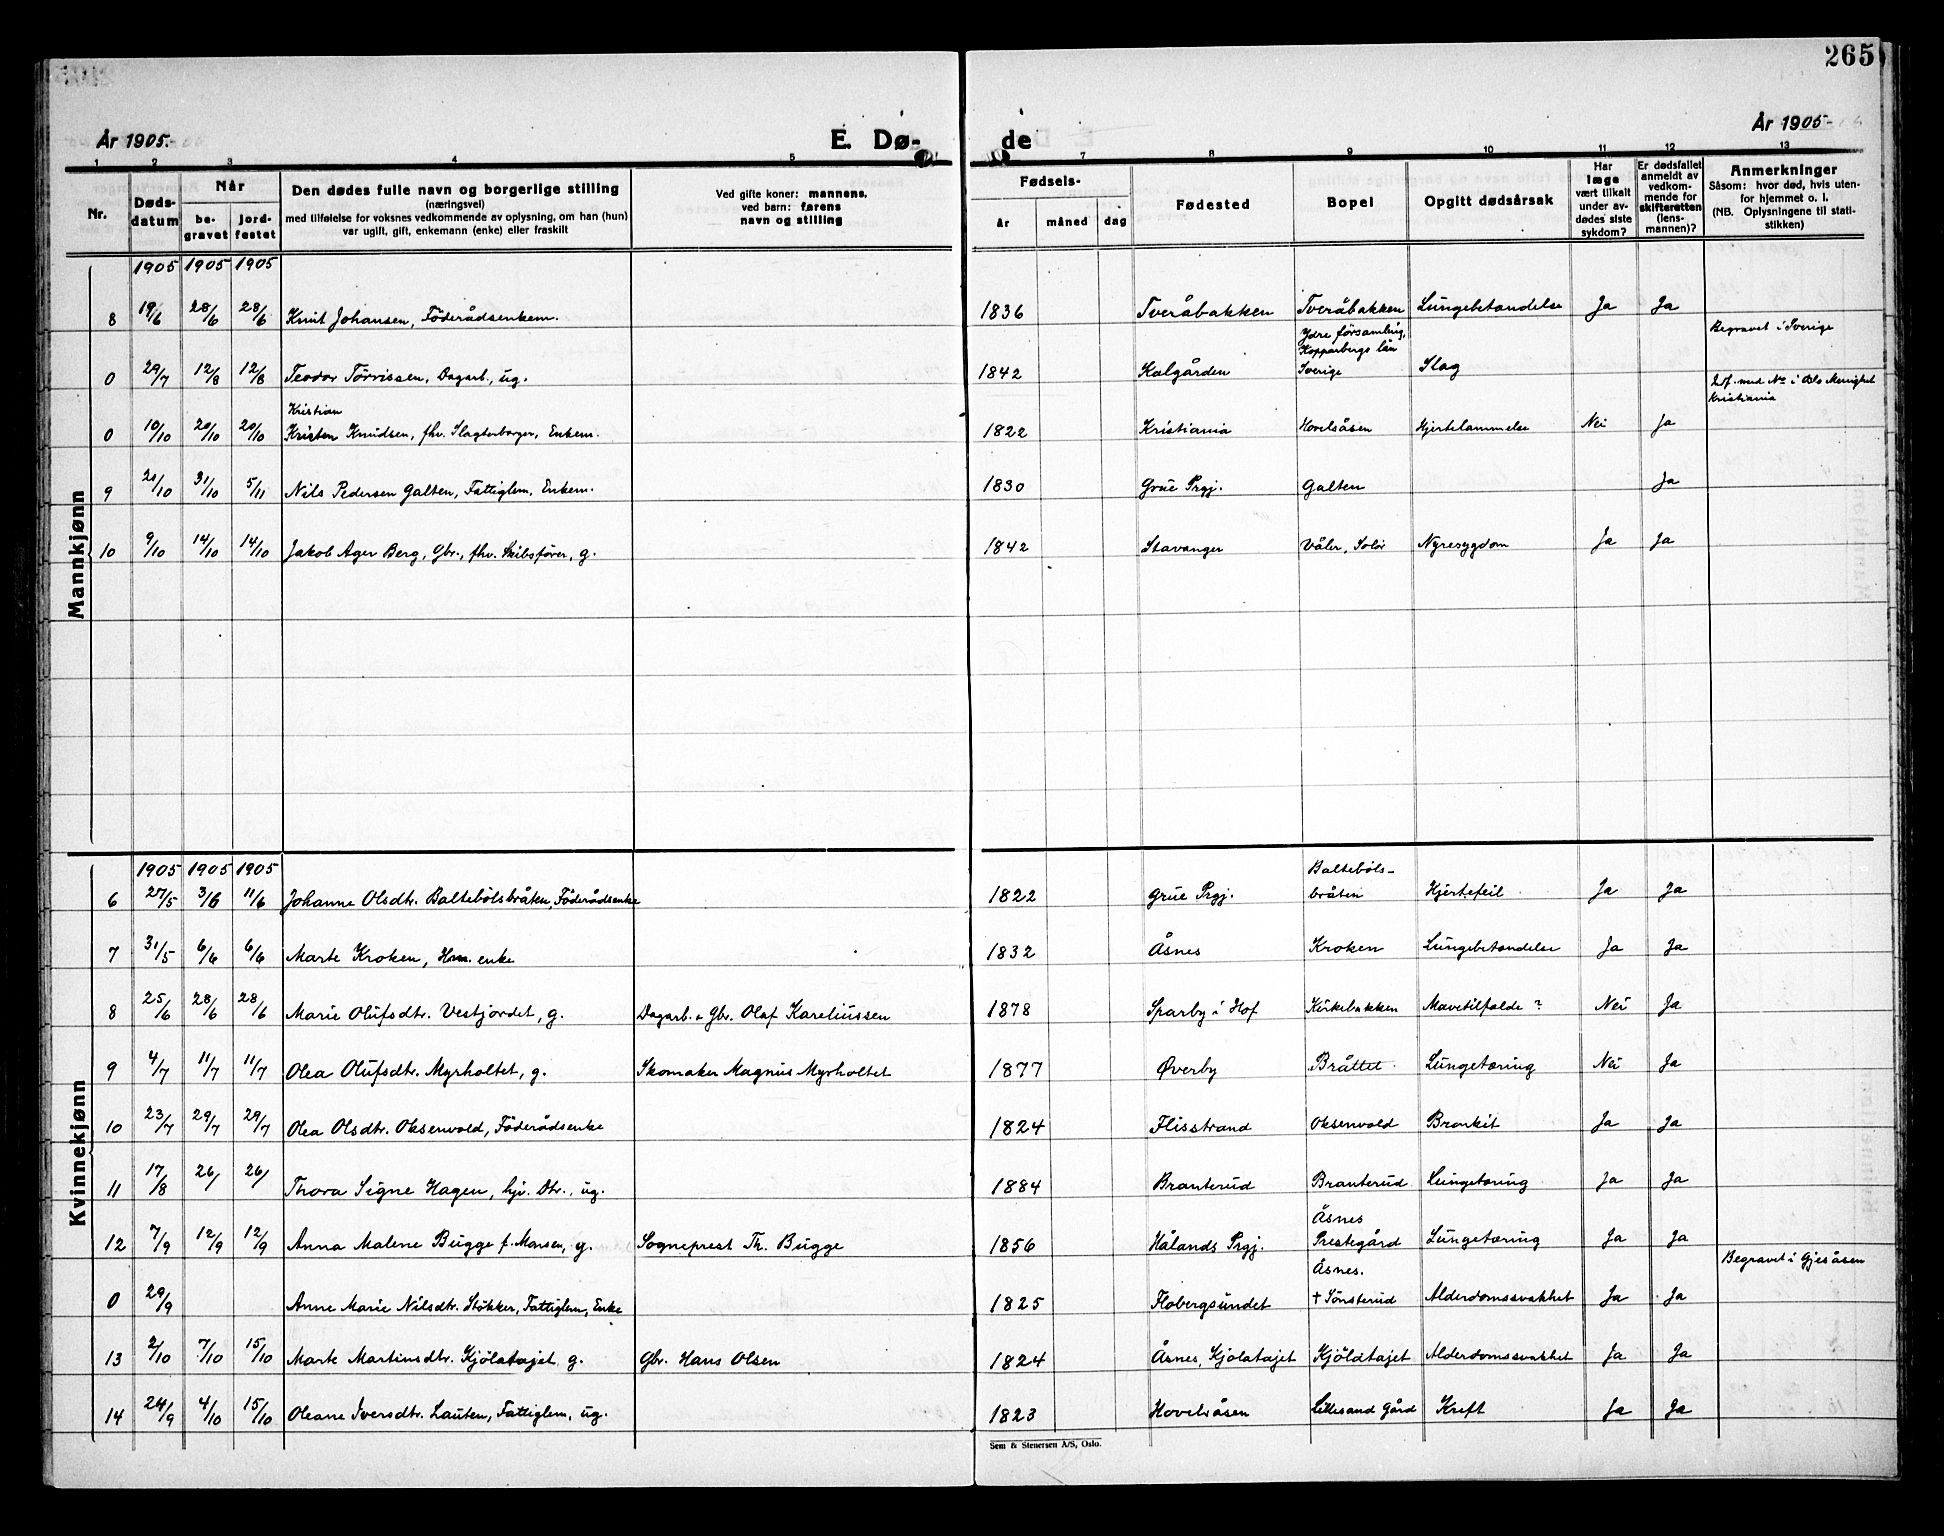 265
År 1905.
E. Dø-
de
År 1905
1 2 3 4 5 7 8 9 10 11 12 13
Nr.
Døds-
datum
Når
be-
gravet
jord-
festet
Den dødes fulle navn og borgerlige stilling
(næringsvei)
med tilføielse for voksnes vedkommende av oplysning, om han (hun)
var ugift, gift, enkemann (enke) eller fraskilt
Ved gifte koner: mannens,
ved barn: farens
navn og stilling
Fødsels-
år måned dag
Fødested
Bopel
Opgitt dødsårsak
Har
læge
vært tilkalt
under av-
dødes siste
sykdom?
Er dødsfallet
anmeldt av
vedkom-
mende for
skifteretten
(lens-
mannen)?
Anmerkninger
Såsom: hvor død, hvis uten-
for hjemmet o. l.
(NB. Oplysningene til stati-
stikken)
Mannkjønn
1905 1905 1905
8 19/6 28/6 28/6 Knut Johansen, Föderådsenkem. 1836 Tveråbakken Tveråbakken Lungebetandelse Ja Ja
Ydre församling,
Kopparbergs län
Begravet i Sverige
0 29/7 12/8 12/8 Teodor Törrissen, Dagarb., ug. 1842 Kalgården Sverige Slag
Kristian
i Oslo Menighet
Kristiania
0 10/10 20/10 20/10 Kristen Knudsen, fhv. Slagterborger, Enkem. 1822 Kristiania Hovelsåsen Hjertelammelse Nei Ja
9 20/10 31/10 5/11 Nils Pedersen Galten, Fattiglem, Enkem. 1830 Grue Prgj. Galten Ja
10 9/10 14/10 14/10 Jakob Ager Berg, Gbr., fhv. Skibsförer, g. 1842 Stavanger Våler, Solör Nyresygdom Ja Ja
Kvinnekjønn
1905 1905 1905
Balteböls-
6 27/5 3/6 11/6 Johanne Olsdtr. Baltebölsbråten, Föderådsenke 1822 Grue Prgj. bråten Hjertefeil Ja Ja
7 31/5 6/6 6/6 Marte Kroken, Hm. enke 1832 Åsnes Kroken Lungebetandelse Ja Ja
8 25/6 28/6 28/6 Marie Olufsdtr. Vestjordet, g. Dagarb. & Gbr. Olaf Kareliussen 1878 Sparby i Hof Kirkebakken Mavetilfælde? Nei Ja
9 4/7 11/7 11/7 Olea Olufsdtr. Myrholtet, g. Skomaker Magnus Myrholtet 1877 Øverby Bråttet Lungetæring Nei Ja
10 23/7 29/7 29/7 Olea Olsdtr. Oksenvold, Föderådsenke 1824 Flisstrand Oksenvold Bronkit Ja Ja
11 17/8 26/ 26/ Thora Signe Hagen, hjv. Dtr., ug. 1884 Branterud Branterud Lungetæring Ja Ja
Åsnes
12 7/9 12/9 12/9 Anna Malene Bugge f. Monsen, g. Sogneprest Th. Bugge 1856 Hålands Prgj. Prestegård Lungetæring Ja Ja
Åsnes.
Begravet i Gjesåsen
0 29/9 Anne Marie Nilsdtr. Stökker, Fattiglem, Enke 1825 Flobergsundet + Sönsterud Alderdomssvakhet Ja Ja
13 2/10 7/10 15/10 Marte Martinsdtr. Kjölatajet g. Gbr. Hans Olsen 1824 Åsnes, Kjölatajet Kjöldtajet Alderdomssvakhet Ja Ja
14 24/9 4/10 15/10 Oleane Iversdtr. Lauten, Fattiglem, ug. 1823 Hovelsåsen Lillesand Gård Kreft Ja Ja
Sem & Stenersen A/S, Oslo.